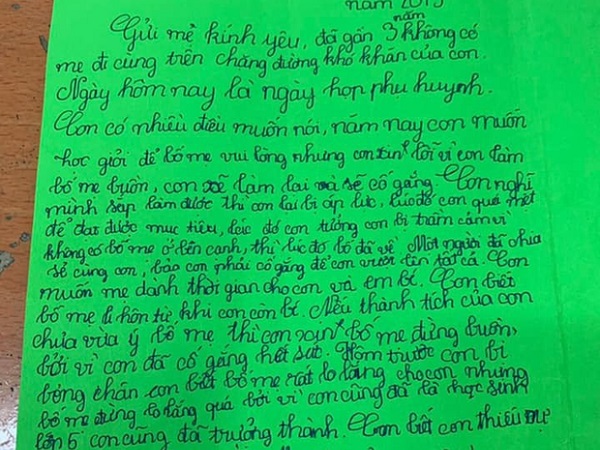 năm 2019
năm
Gửi mẹ kính yêu, đã gần 3 không có
mẹ đi cùng trên chặng đường khó khăn của con.
Ngày hôm nay là ngày họp phụ huynh.
Con có nhiều điều muốn nói, năm nay con muốn
học giỏi để bố mẹ vui lòng nhưng con xin lỗi vì con làm
bố mẹ buồn, con sẽ làm lại và sẽ cố gắng. Con nghĩ
mình sắp làm được thì con lại bị áp lực, lúc đó con quá mệt
để đạt được mục tiêu, lúc đó con tưởng con bị trầm cảm vì
không có bố mẹ ở bên cạnh, thì lúc đó bố đã về. Một người đã chia
sẻ cùng con, bảo con phải cố gắng để con vượt lên tất cả. Con
muốn mẹ dành thời gian cho con và em bé. Con biết
bố mẹ li hôn từ khi con còn bé. Nếu thành tích của con
chưa vừa ý bố mẹ thì con xin bố mẹ đừng buồn,
bởi vì con đã cố gắng hết sức. Hôm trước con bị
bỏng chân con biết bố mẹ rất lo lắng cho con nhưng
bố mẹ đừng lo lắng quá bởi vì con cũng đã là học sinh
lớp 5 con cũng đã trưởng thành. Con biết con thiếu sự